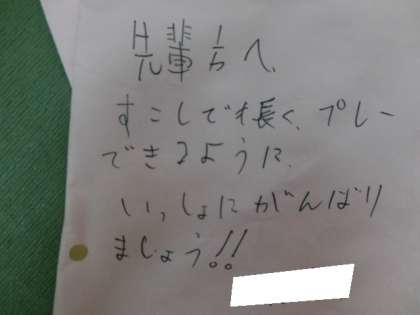 先輩方へ、
すこしでも長く、プレー
できるように、
いっしょにがんばり
ましょう!!